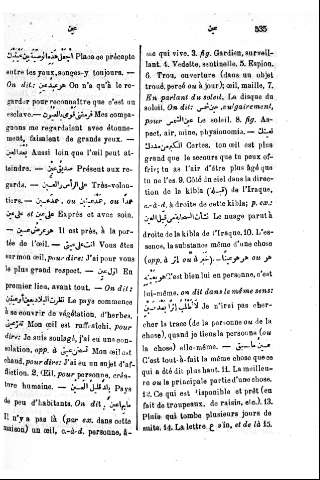 عين
عين
535
Place ce précepte
entre tes yeux, songes-y toujours. —
On dit: هو عبد عين On n'a qu'à le re-
garder pour reconnaître que c'est un
esclave. — Mes compa-
gnons me regardaient avec étonne-
ment, faisaient de grands yeux. —
Aussi loin que l'œil peut at-
teindre. — صديق عين Présent aux re-
gards. — على الرأس والعين Très-volon-
tiers. —
Exprès et avec soin.
— هو عرض عين Il est près, à la por-
tée de l'œil. — انت على عيني Vous êtes
sur mon œil, pour dire: J'ai pour vous
le plus grand respect. — اول عين En
premier lieu, avant tout. — On dit:
Le pays commence
à se couvrir de végétation, d'herbes.
Mon œil est rafraîchi, pour
dire: Je suis soulagé, j'ai eu une con-
solation, opp. à Mon œil est
chaud, pour dire: J'ai eu un sujet d'af-
fliction. 2. Œil, pour personne, créa-
ture humaine. — بلد قليل العين Pays
de peu d'habitants. On dit: ما بها عين
Il n'y a pas là (par ex. dans cette
maison) un œil, c.-à-d. personne, â-
me qui vive. 3. fig. Gardien, surveil-
lant. 4. Vedette, sentinelle. 5. Espion.
6. Trou, ouverture (dans un objet
troué, percé ou à jour); œil, maille. 7.
En parlant du soleil. Le disque du
soleil. On dit: عين شمس, vulgairement,
pour الشمس Le soleil. 8. fig. As-
pect, air, mine, physionomie. —
Certes, ton œil est plus
grand que le secours que tu peux of-
frir; tu as l'air d'être plus âgé que
tu ne l'es. 9. Côté du ciel dans la direc-
tion de la kibla (قبلة) de l'Iraque,
c.-à-d. à droite de cette kibla; p. ex.:
نشأت السحابة من قبل العين Le nuage parut à
droite de la kibla de l'Iraque. 10. L'es-
sence, la substance même d'une chose
(opp. à اثر ou à غير). — هو هو عينا ou
هو هو بعينه C'est bien lui en personne, c'est
lui-même. on dit dans le même sens:
لا اطلب اثرا بعد عين Je n'irai pas cher-
cher la trace (de la personne ou de la
chose), quand je tiens la personne (ou
la chose) elle-même. —
C'est tout-à-fait la même chose que ce
qui a été dit plus haut. 11. La meilleu-
re ou la principale partie d'une chose.
12. Ce qui est disponible et prêt (en
fait de troupeaux, de raisin, etc.). 13.
Pluie qui tombe plusieurs jours de
suite. 14. La lettre ع aïn, et de là 15.